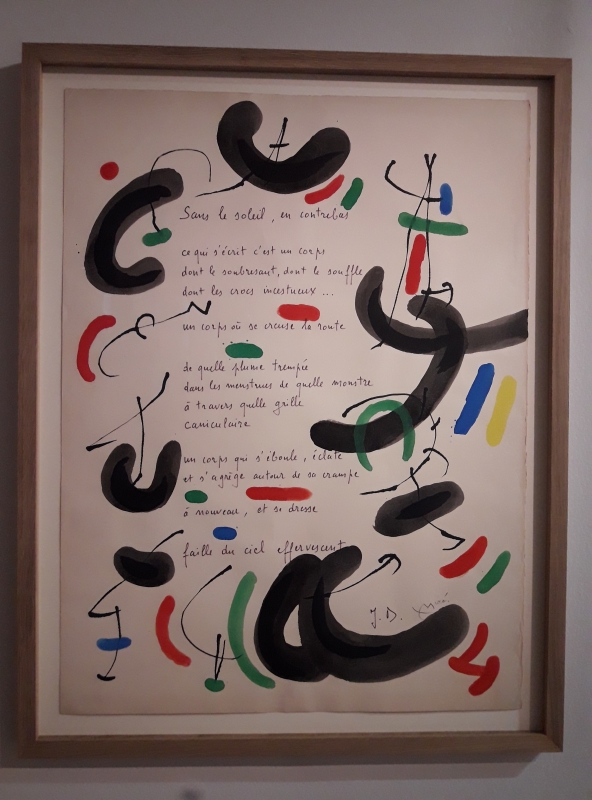 Sans le soleil, en contrebas
ce qui s'écrit c'est un corps
dont le soubresaut, dont le souffle
dont les crocs incestueux ...
un corps où se creuse la route
de quelle plume trempée
dans les menstrues de quelle monstre
à travers quelle grille
caniculaire
un corps qui s'éboule, éclate
et s'agrège autour de sa crampe
à nouveau, et se dresse
faille du ciel effervescent
J. D. Miró